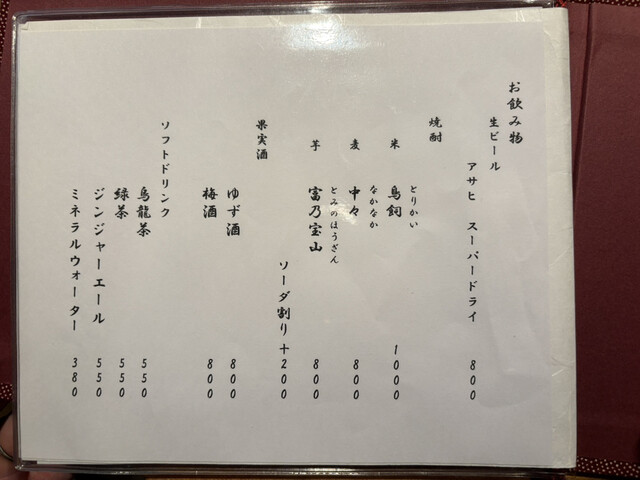 お飲み物
生ビール
アサヒ スーパードライ 800
焼酎
米 鳥飼 とりかい 1000
麦 中々 なかなか 800
芋 富乃宝山 とみのほうざん 800
ソーダ割り +200
果実酒
ゆず酒 800
梅酒 800
ソフトドリンク
烏龍茶 550
緑茶 550
ジンジャーエール 550
ミネラルウォーター 380